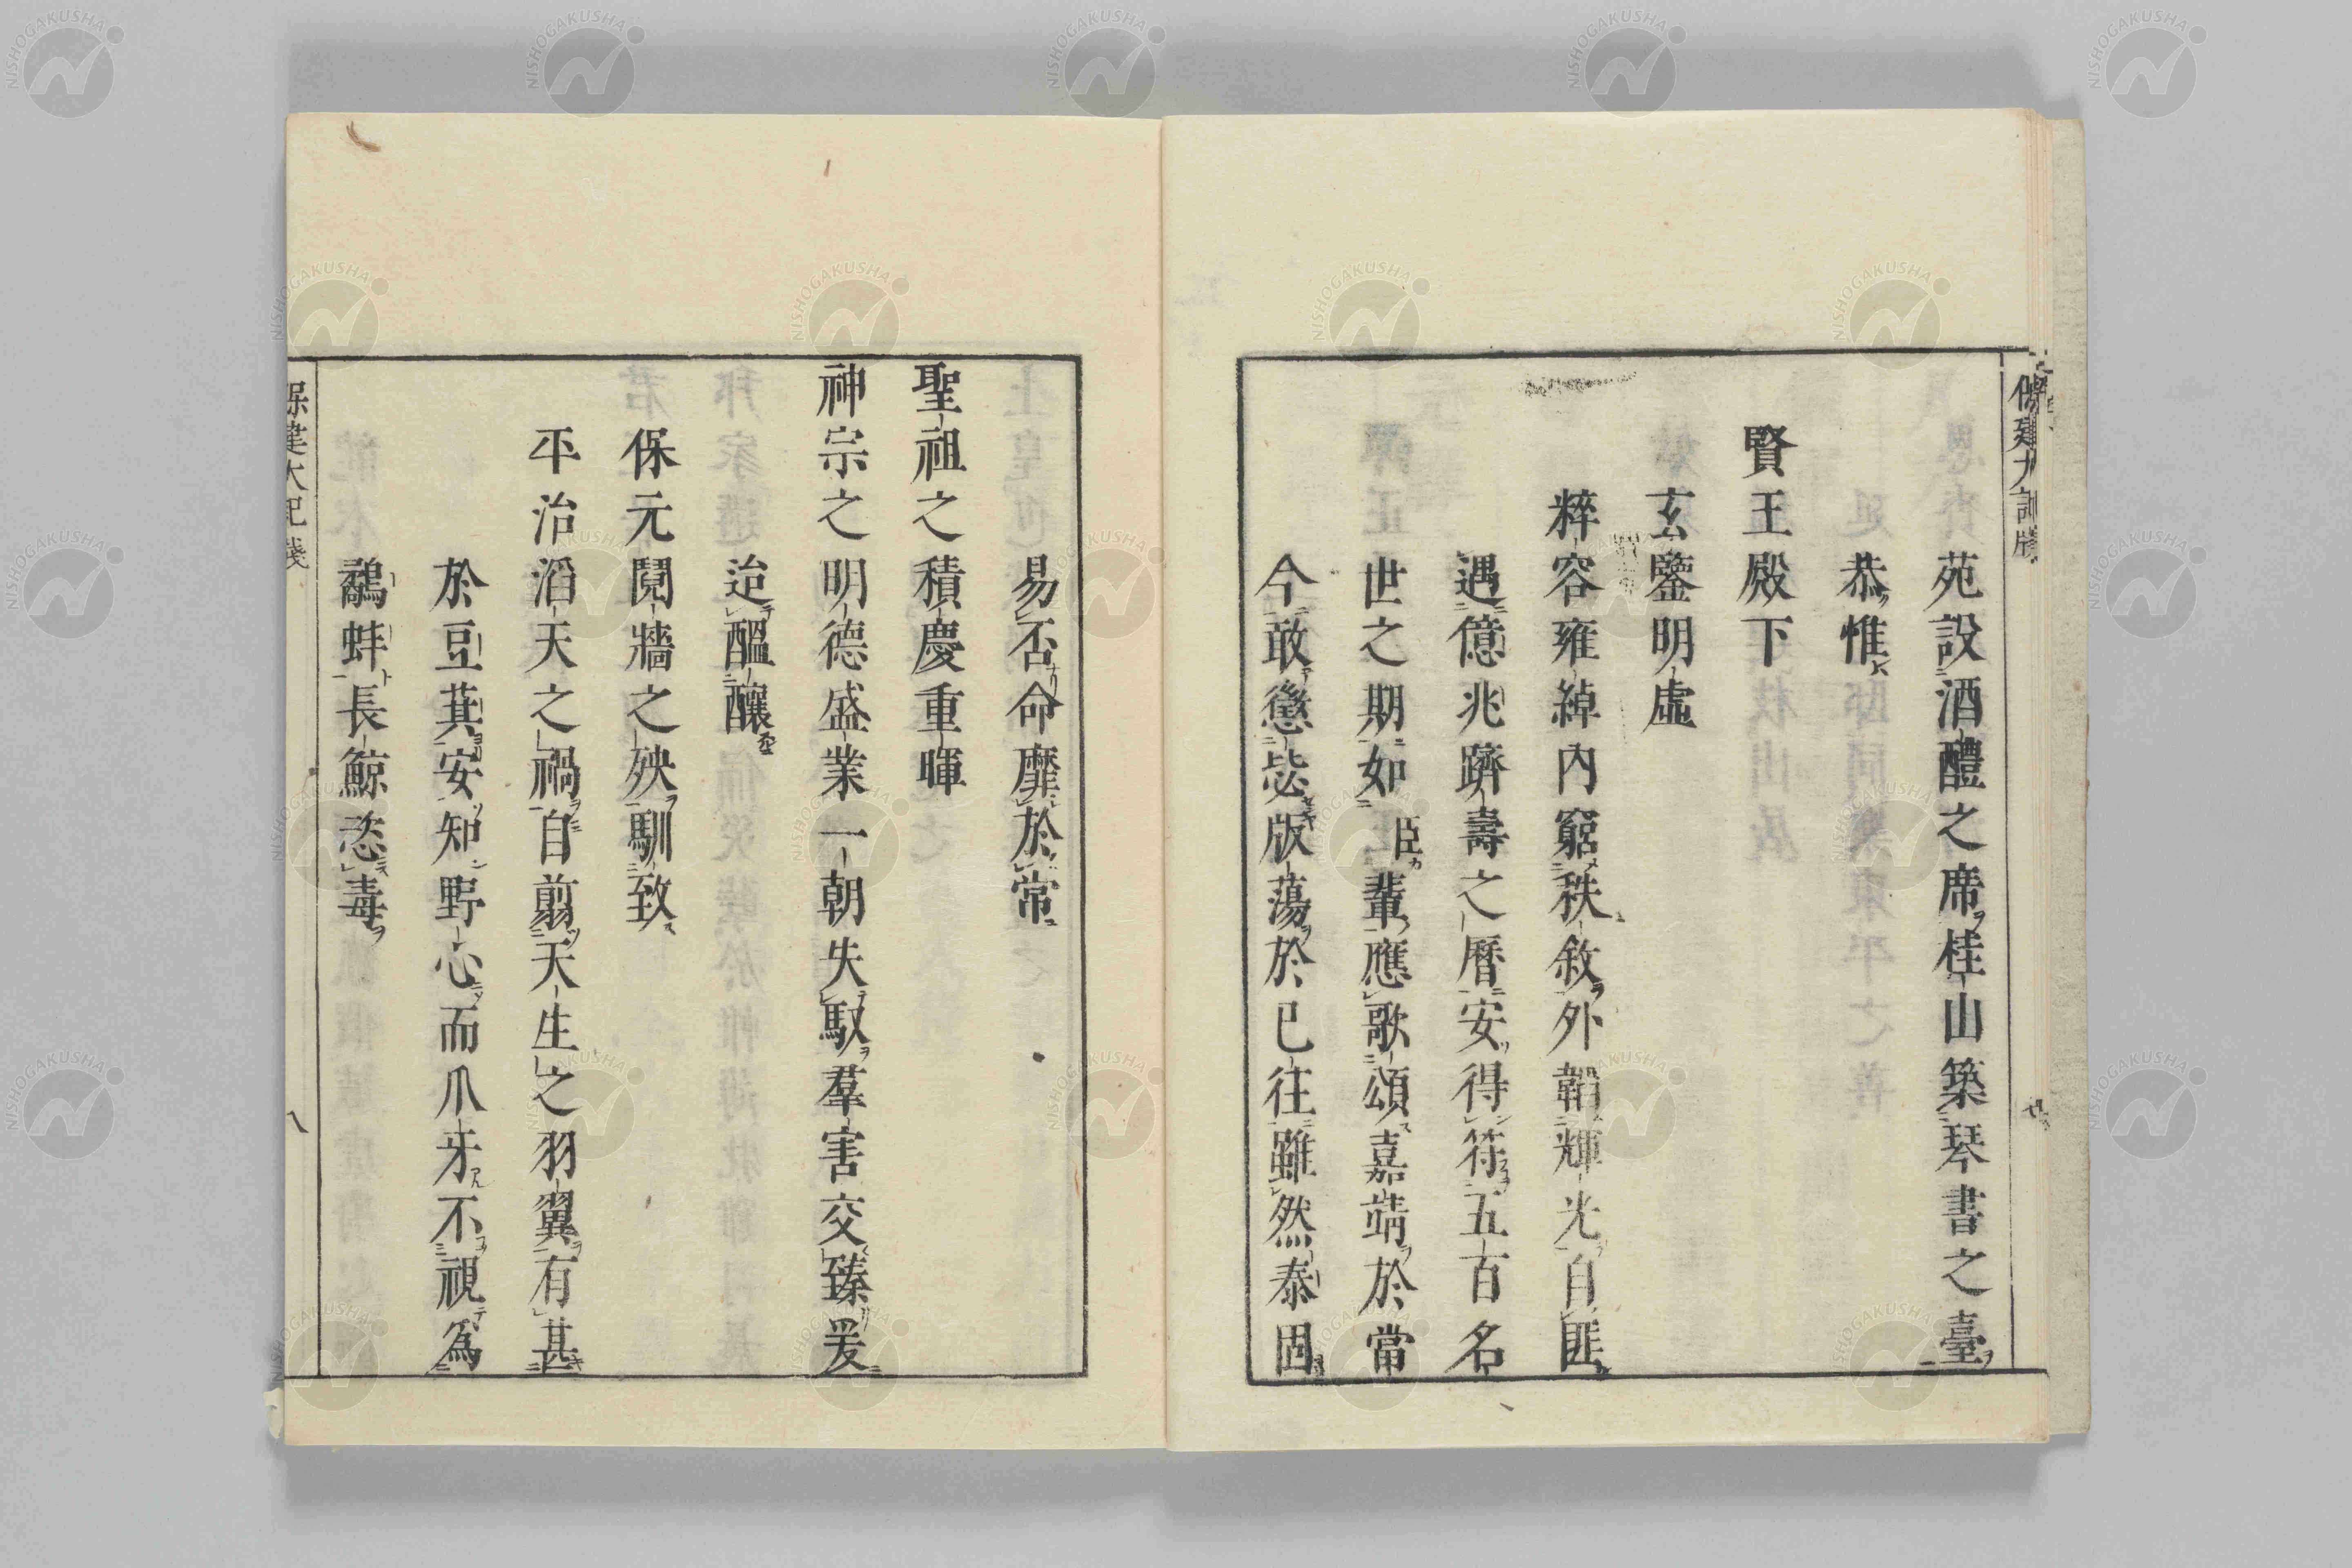 苑設酒醴之席桂山築琴書之臺
恭惟
賢王殿下
玄鑒明虛
粹容雍綽內窮秩敘外韜輝光自匪
遇億兆躋壽之曆安得符五百名
世之期如臣輩應歌頌嘉靖於當
今敢懲毖版蕩於已往雖然泰固
易否命靡於常
聖祖之積慶重暉
神宗之明德盛業一朝失馭羣害交臻爰
迨醞釀
保元鬩牆之殃馴致
平治滔天之禍自翦天生之羽翼有甚
於豆萁安知野心而爪牙不視爲
鷸蚌長鯨恣毒
保建大記牋
八
NISHOGAKUSHA